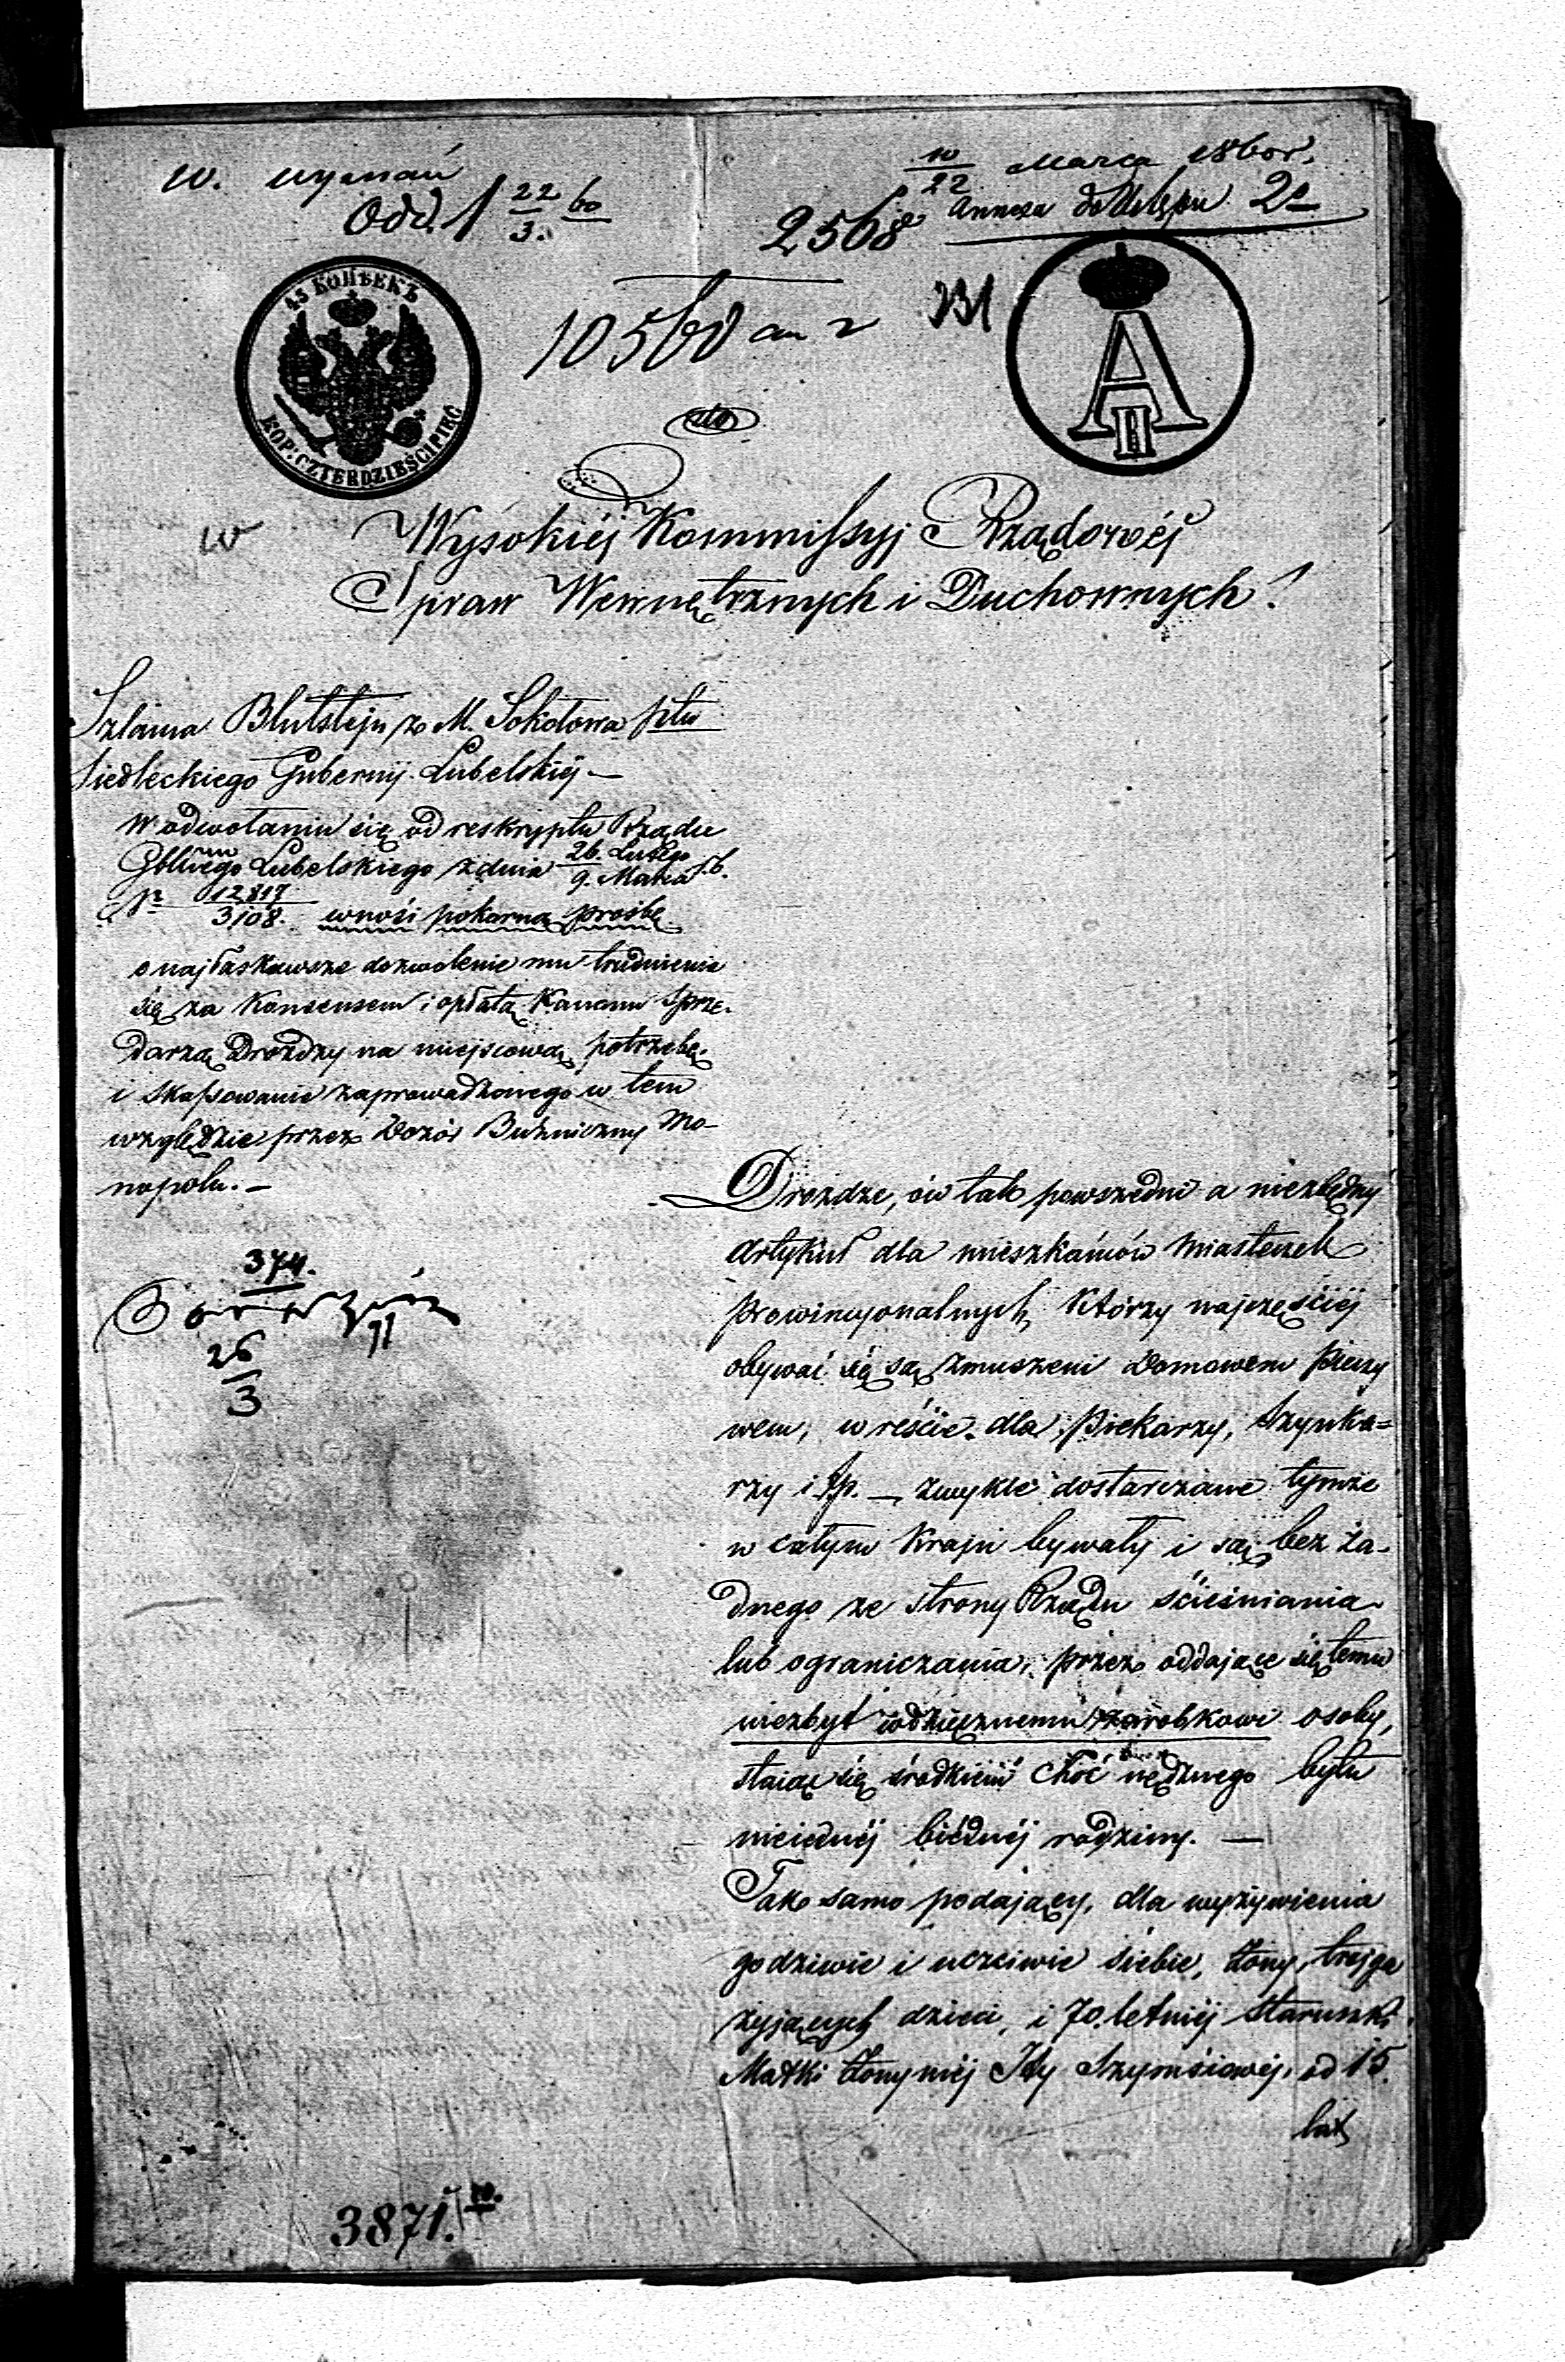 w. wyznań
Odd. 1 22/3. 60
10/22 Marca 1860 r.
2568 Annexa do 2
10560 an 2
231
45 КОПѢЕКЪ
KOP: CZTERDZIEŚCI PIĘĆ
A II
do
w
Wysokiéj Kommissyj Rządowéj
Spraw Wewnętrznych i Duchownych!
Szlama Blutstejn z M. Sokołowa Ptu
Siedleckiego Gubernij Lubelskiéj —
W odwołaniu się od reskryptu Rządu
Gblnego Lubelskiego z dnia 26. Lutego/9. Marca r.b.
Nr 12817/3108. wnosi pokorną prośbę
o najłaskawsze dozwolenie mu trudnienia
się za Konsensem i opłatą Kanonu Sprze-
darzą Drożdży na miejscową potrzebę
i skassowanie zaprowadzonego w tem
względzie przez Dozór Bużniczny Mo-
nopolu. —
Drożdze, ów tak powszedni a niezbędny
Artykuł dla mieszkańców Miasteczek
prowincyonalnych, Którzy najczęściéj
obywać się są zmuszeni Domowem pieczy
wem, w reście dla Piekarzy, Szynka=
rzy i tp. — zwykle dostarczane tymże
w całym Kraju bywały i są bez ża-
dnego ze strony Rządu ścieśniania
lub ograniczania, przez oddające się temu
niezbyt wdzięcznemu zarobkowi osoby,
staiąc się środkiem choć nędznego bytu
nieiednéj biédnéj rodziny. —
Tak samo podający, dla wyżywienia
godziwie i uczciwie siebie, żony, trojga
żyjących dzieci, i 70. letniéj Staruszki
Matki żony méj Ity Szymsiowéj, od 15.
lat
374.
26/3
3871.